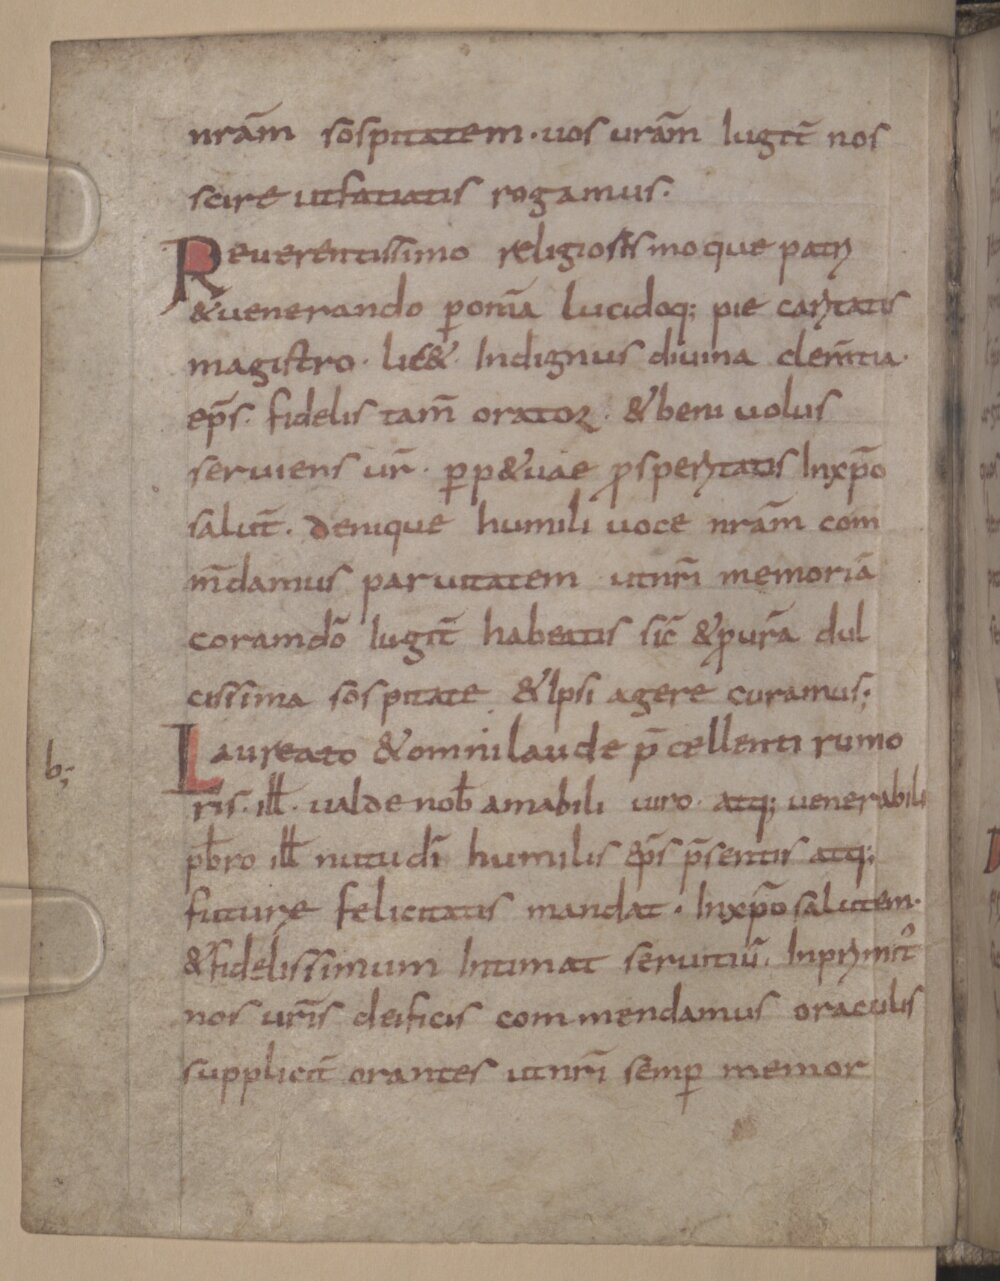 nrām sōspitatem · uos urām lugit̄ nos
scire ut faciatis rogamus ·
Reuerentissimo religiosissimoque patri
& uenerando p̲ om̄ia lucidoq; pie caritatis
magistro · lic& Indignus diuina clem̄tia ·
ep̄s · fidelis tam̄ orator · & beni uolus
seruiens ur̄ · p̲p&uae prosperitatis Inxp̄o
salut̄ · Denique humili uoce nrām com
m̄damus paruitatem ut nr̄i memoriā
coram dō lugit̄ habeatis sic̄ & pro ur̄a dul
cissima sospitate & Ipsi agere curamus ;
b;
Laureato & omni laude p̄cellenti rumo
ris · ill̄ · ualde nob̄ amabili uiro · atq; uenerabili
pb̄ro ill̄ nutu dī humilis ep̄s p̄sentis atq;
future felicitatis mandat · Inxp̄o salutem ·
& fidelissimum Intimat seruitiū · Inprimit᷒
nos ur̄is deificis commendamus oraculis
supplicit̄ orantes ut nr̄i semp̲ memor